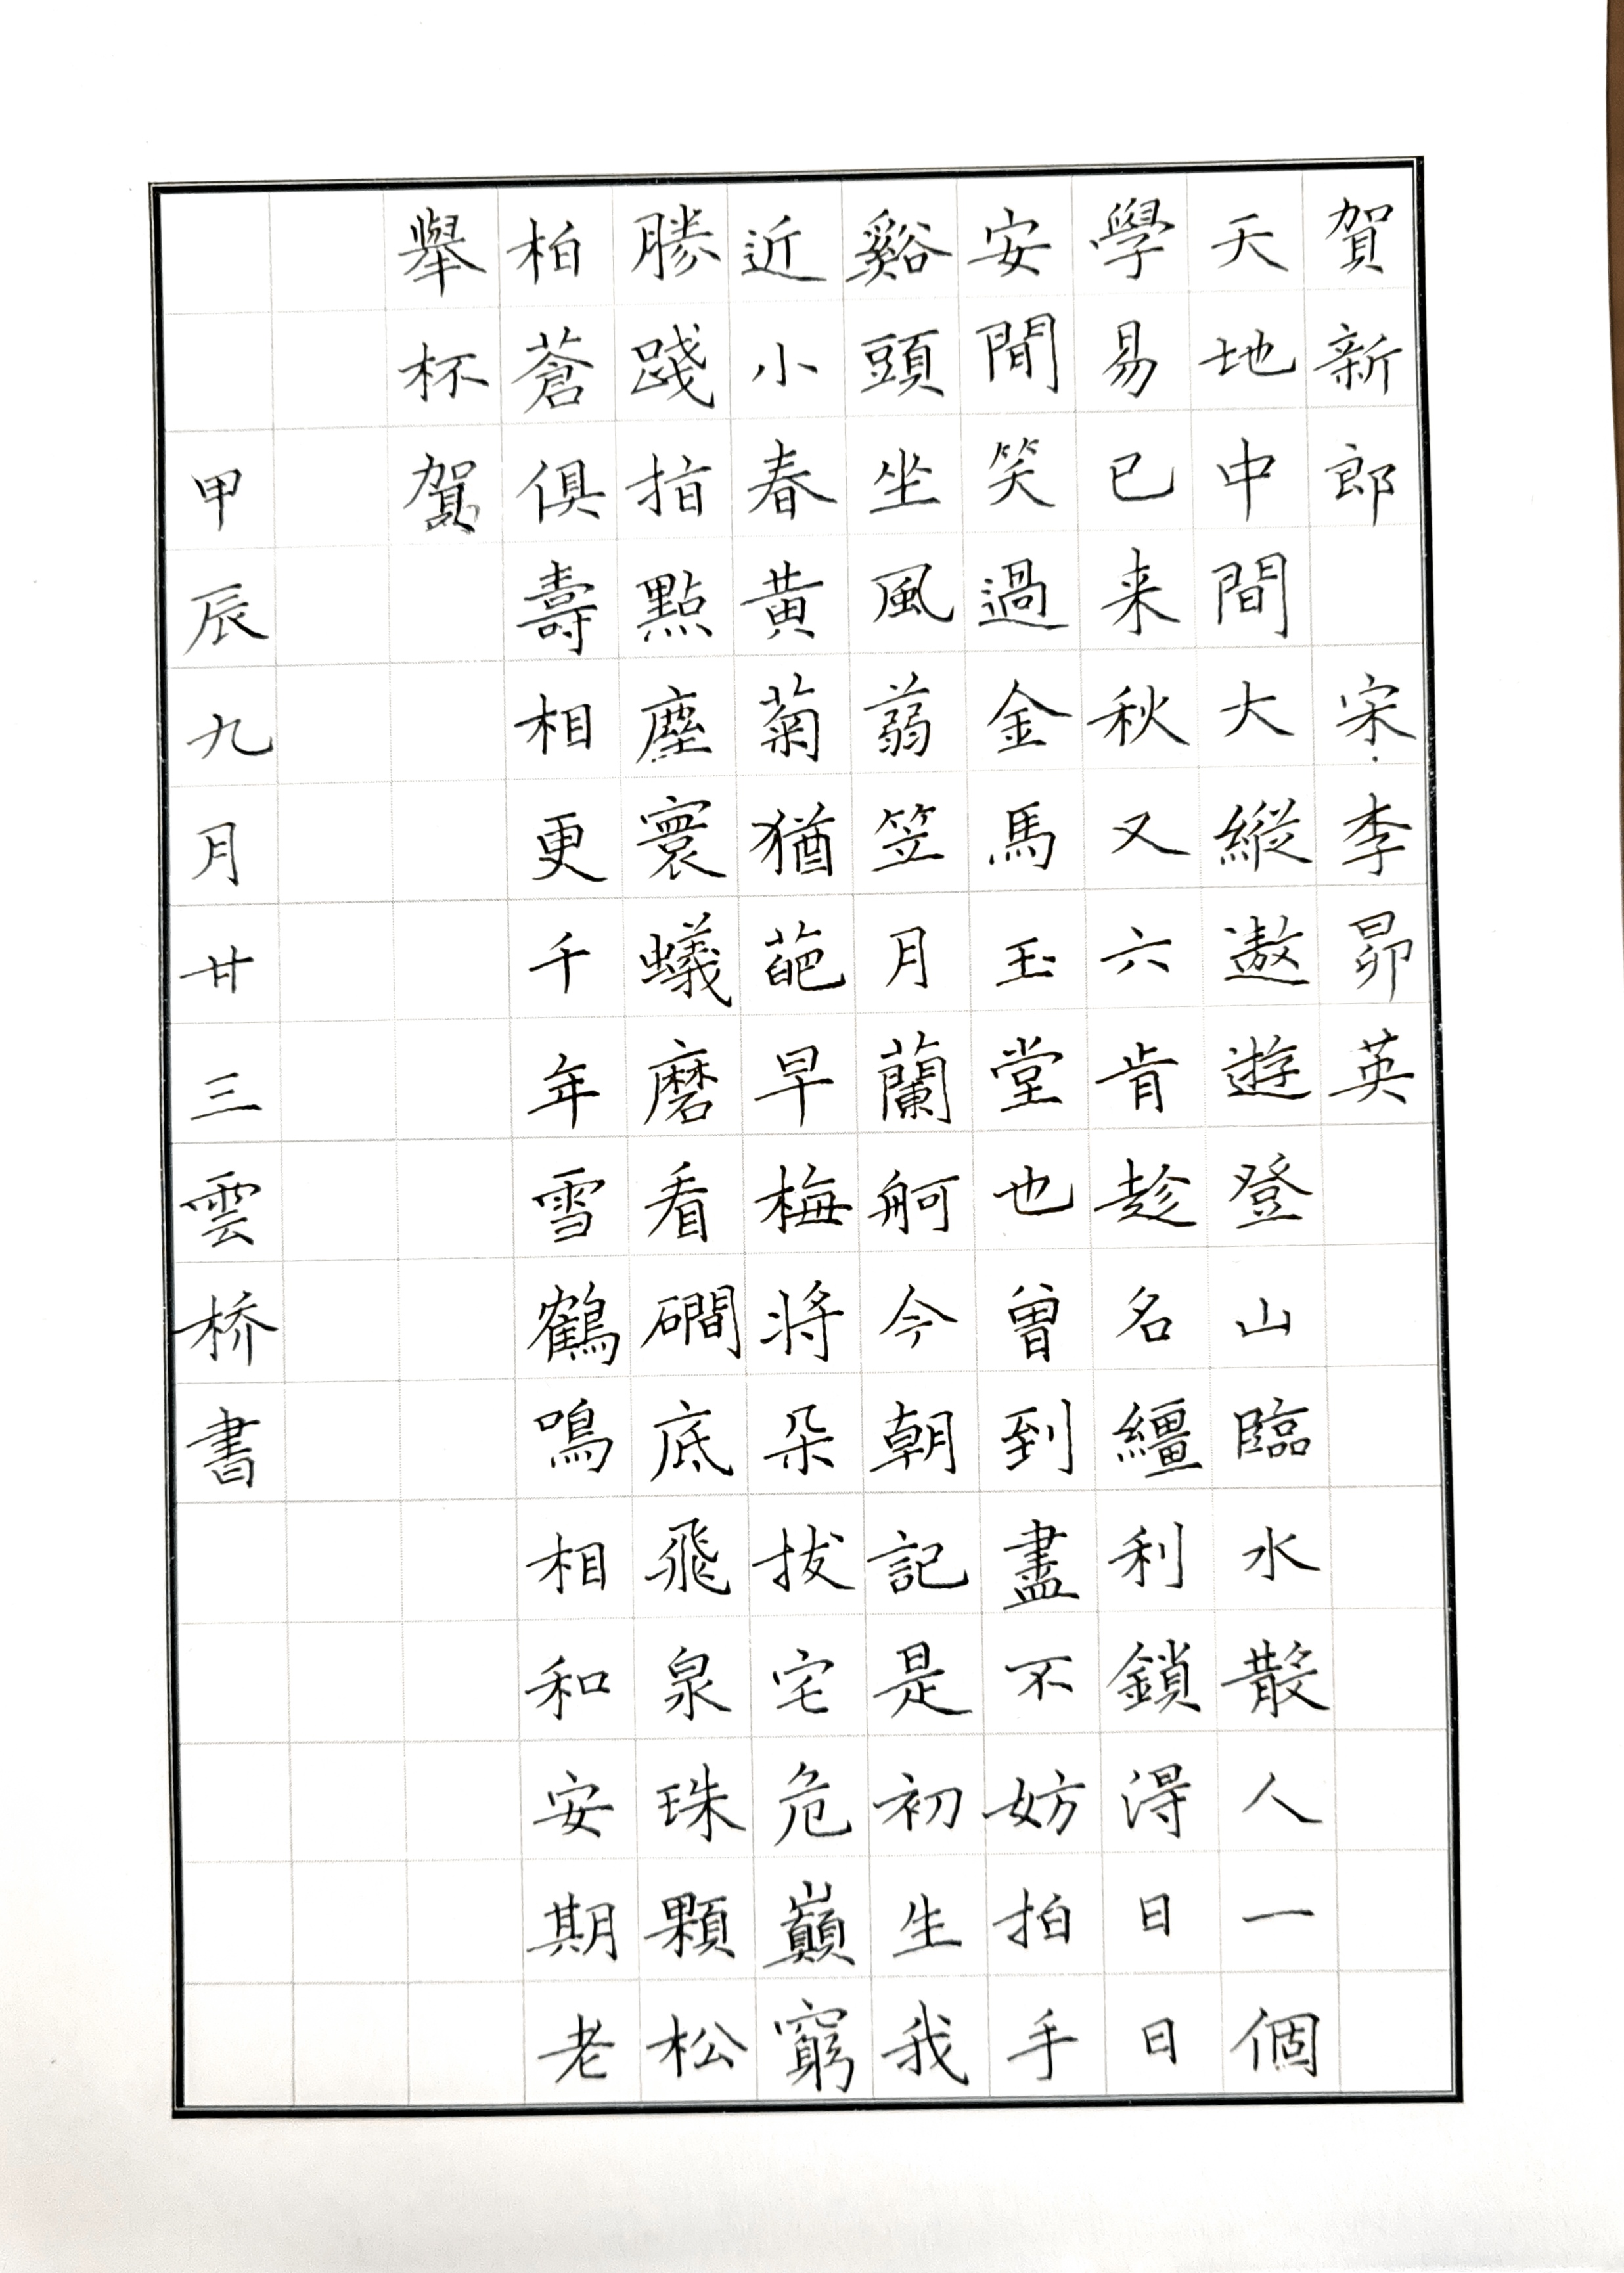 賀新郎 宋·李昴英
天地中間大縱遨遊登山臨水散人一個
學易已来秋又六肯趁名繮利鎖得日日
安閒笑過金馬玉堂也曾到盡不妨拍手
谿頭坐風蒻笠月蘭舸今朝記是初生我
近小春黄菊猶葩早梅将朵拔宅危巔窮
勝踐指點塵寰蟻磨看磵底飛泉珠顆松
柏蒼俱壽相更千年雪鶴鳴相和安期老
舉杯賀
甲辰九月廿三雲桥書